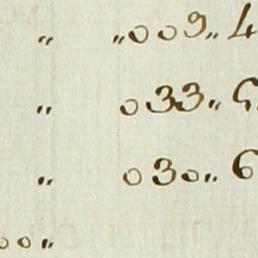 „ „009„ 4
„ 033„ 5
„ 030„ 6
00„